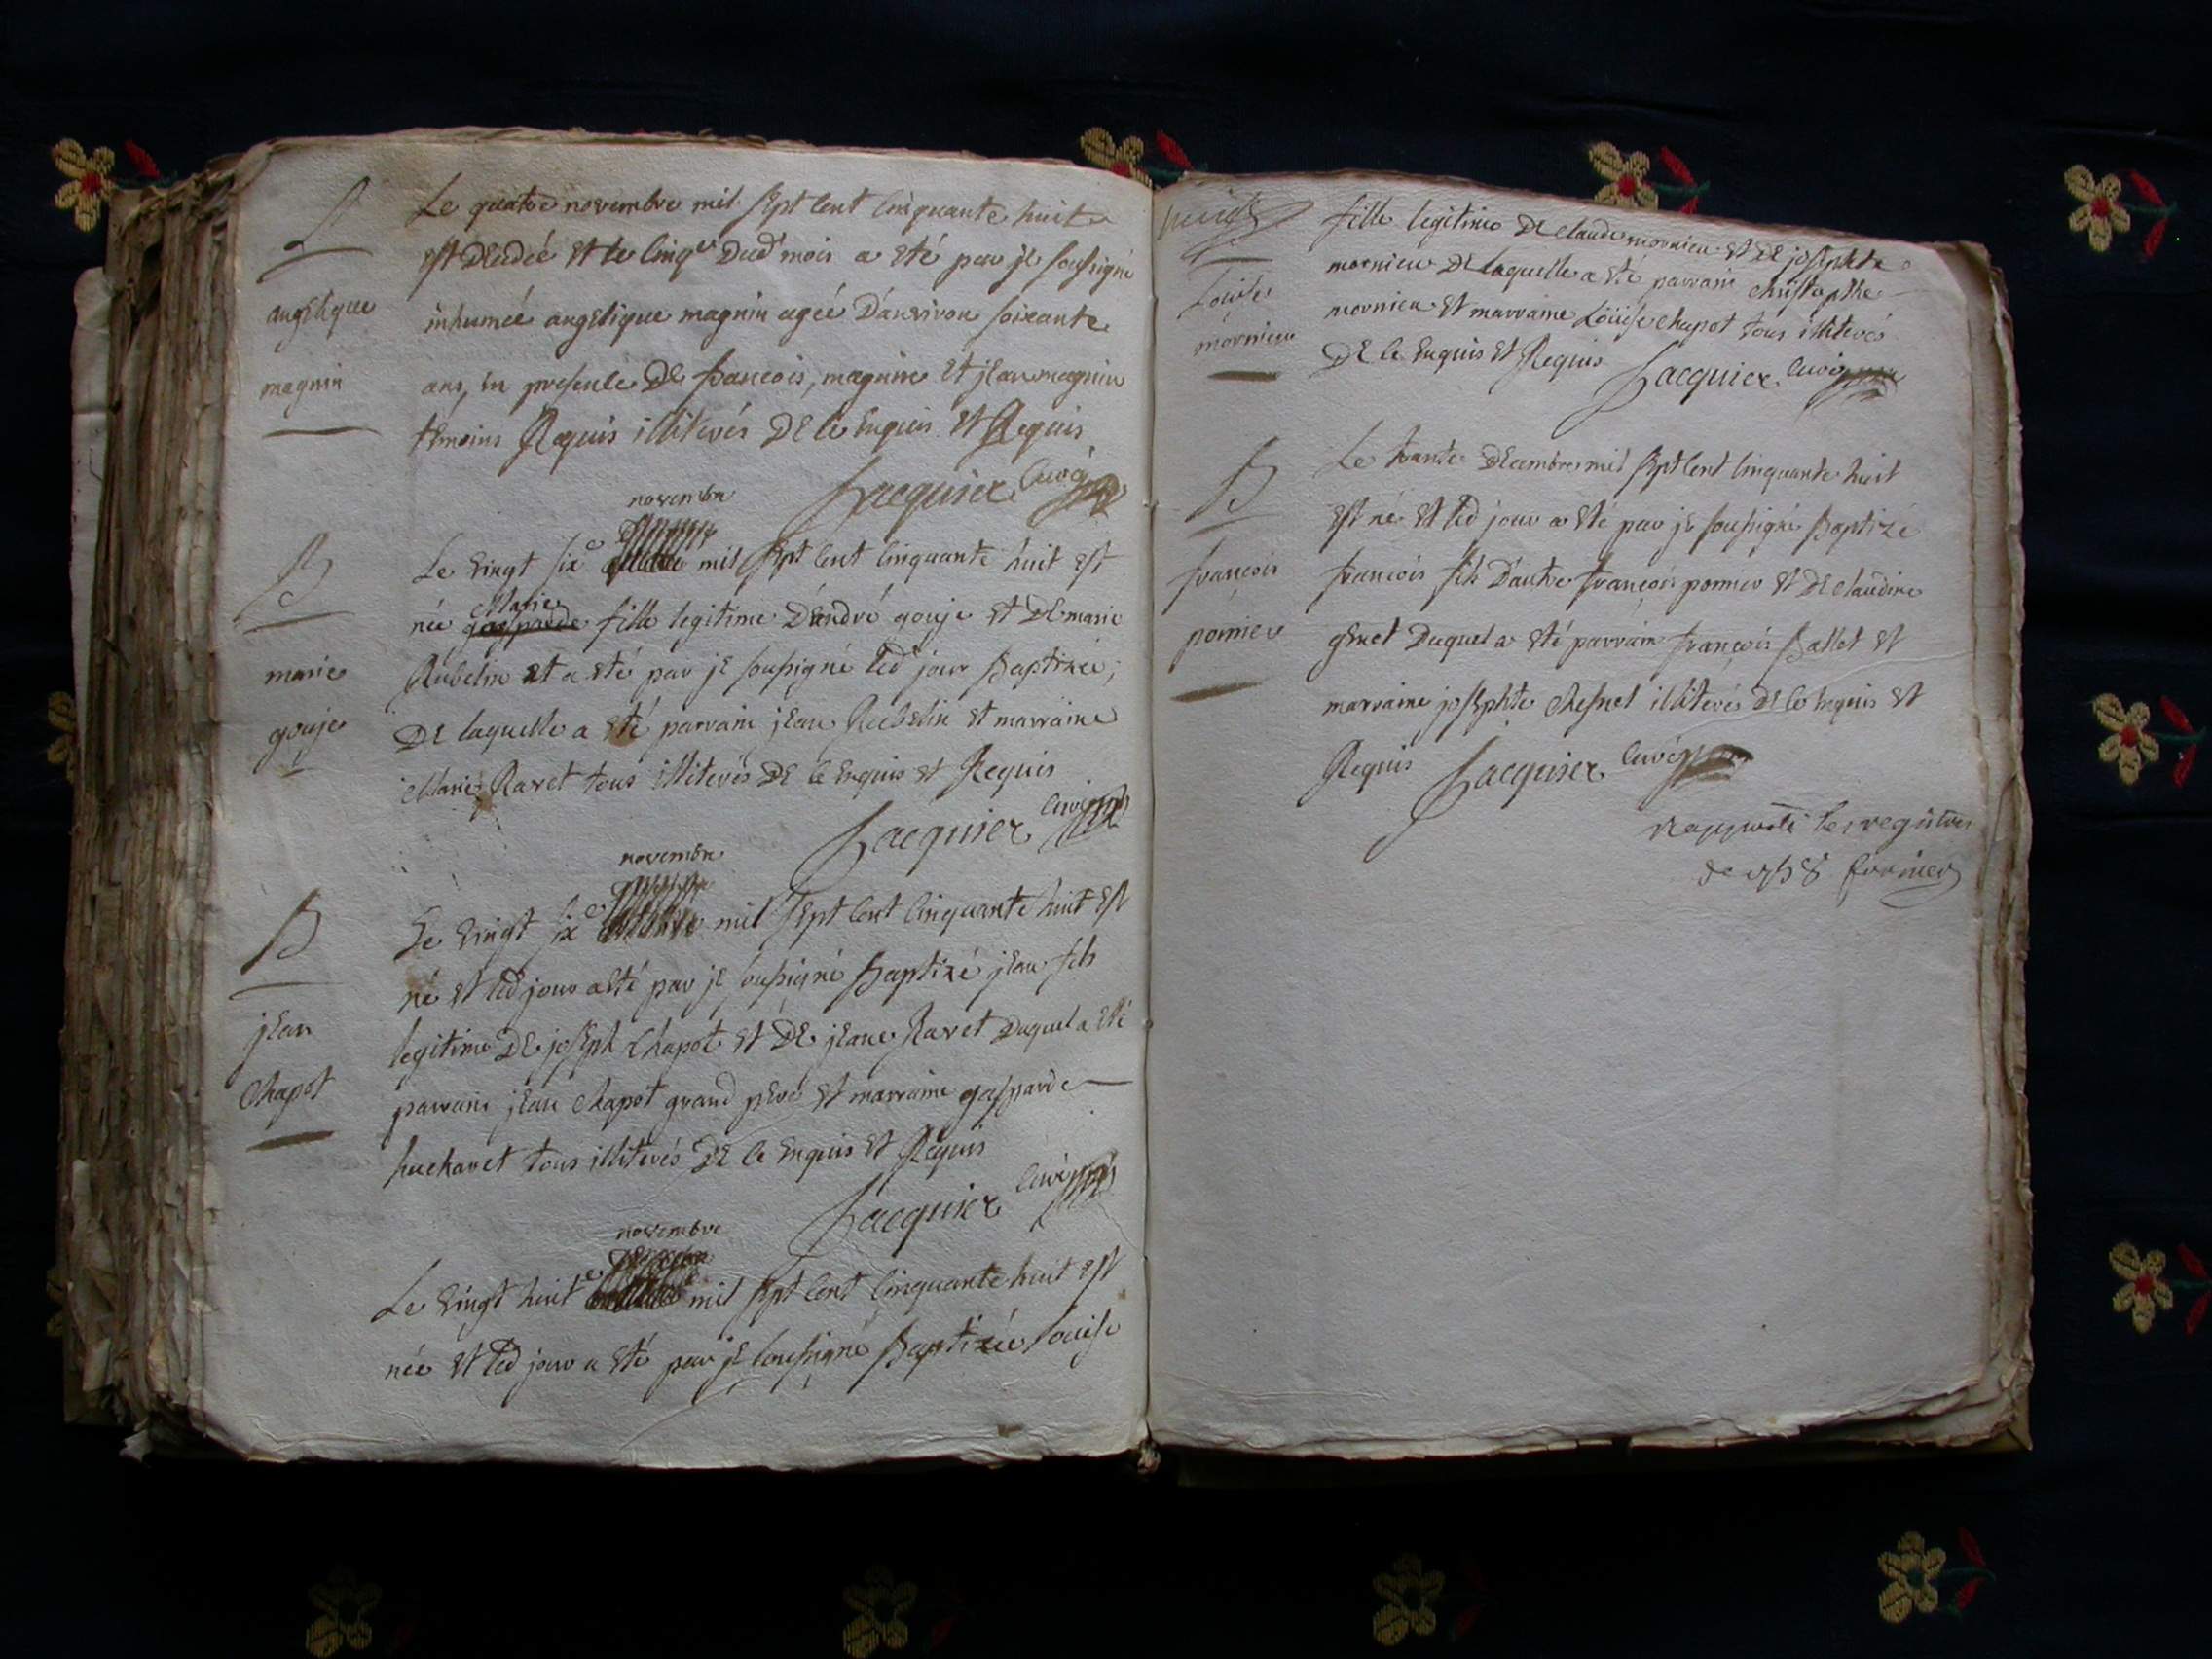 Le quatre novembre mil sept cent cinquante huit
est décédée et le cinq dud mois a été par je soussigné
angélique
inhumée angélique magnin agée d'anviron soixante
magnin
ans, en presence de francois, magnin et jean magnin
témoins Requis illiterés de ce enquis et Requis
Jacquier curé
novembre
B
Le vingt six mil sept cent cinquante huit est
Marie
née gasparde fille legitime d'andré gouje et de marie
marie
Rubelin et a été par je soussigné led jour Baptizée;
gouje
de laquelle a été parrain jean Rubelin et marraine
Marie Ravet tous illiterés de ce enquis et Requis
Jacquier curé
novembre
B
Le vingt six mil sept cent cinquante huit est
né et led jour a été par je soussigné Baptizé jean fils
jean
legitime de joseph chapot et de jeane Ravet duquel a été
chapot
parrain jean chapot grand pere et marraine gasparde
huchavet tous illiterés de ce enquis et Requis
Jacquier curé
novembre
Le vingt huit mil sept cent cinquante huit est
née et led jour a été par je soussigné Baptizée louise
fille legitime de claude mornieu et de josephte
Louise
mornieu de laquelle a été parrain christophe
mornieu
mornieu et marraine Loüise chapot tous illiterés
de ce enquis et Requis Jacquier curé
B
Le trante decembre mil sept cent cinquante huit
est né et led jour a été par je soussigné Baptizé
francois
francois fils d'autre francois pomier et de claudine
pomier
genet duquel a été parrain francois Ballet et
marraine josephte chesnel illiterés de ce enquis et
Requis Jacquier curé
Rapporté les registres
de 1758 fornier